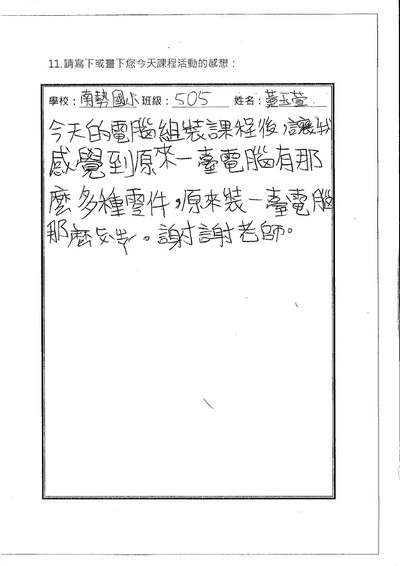 11.請寫下或畫下您今天課程活動的感想：
學校：南勢國小 班級：505 姓名：黃玉萱
今天的電腦組裝課程後，讓我
感覺到原來一臺電腦有那
麼多種零件，原來裝一臺電腦
那麼。謝謝老師。